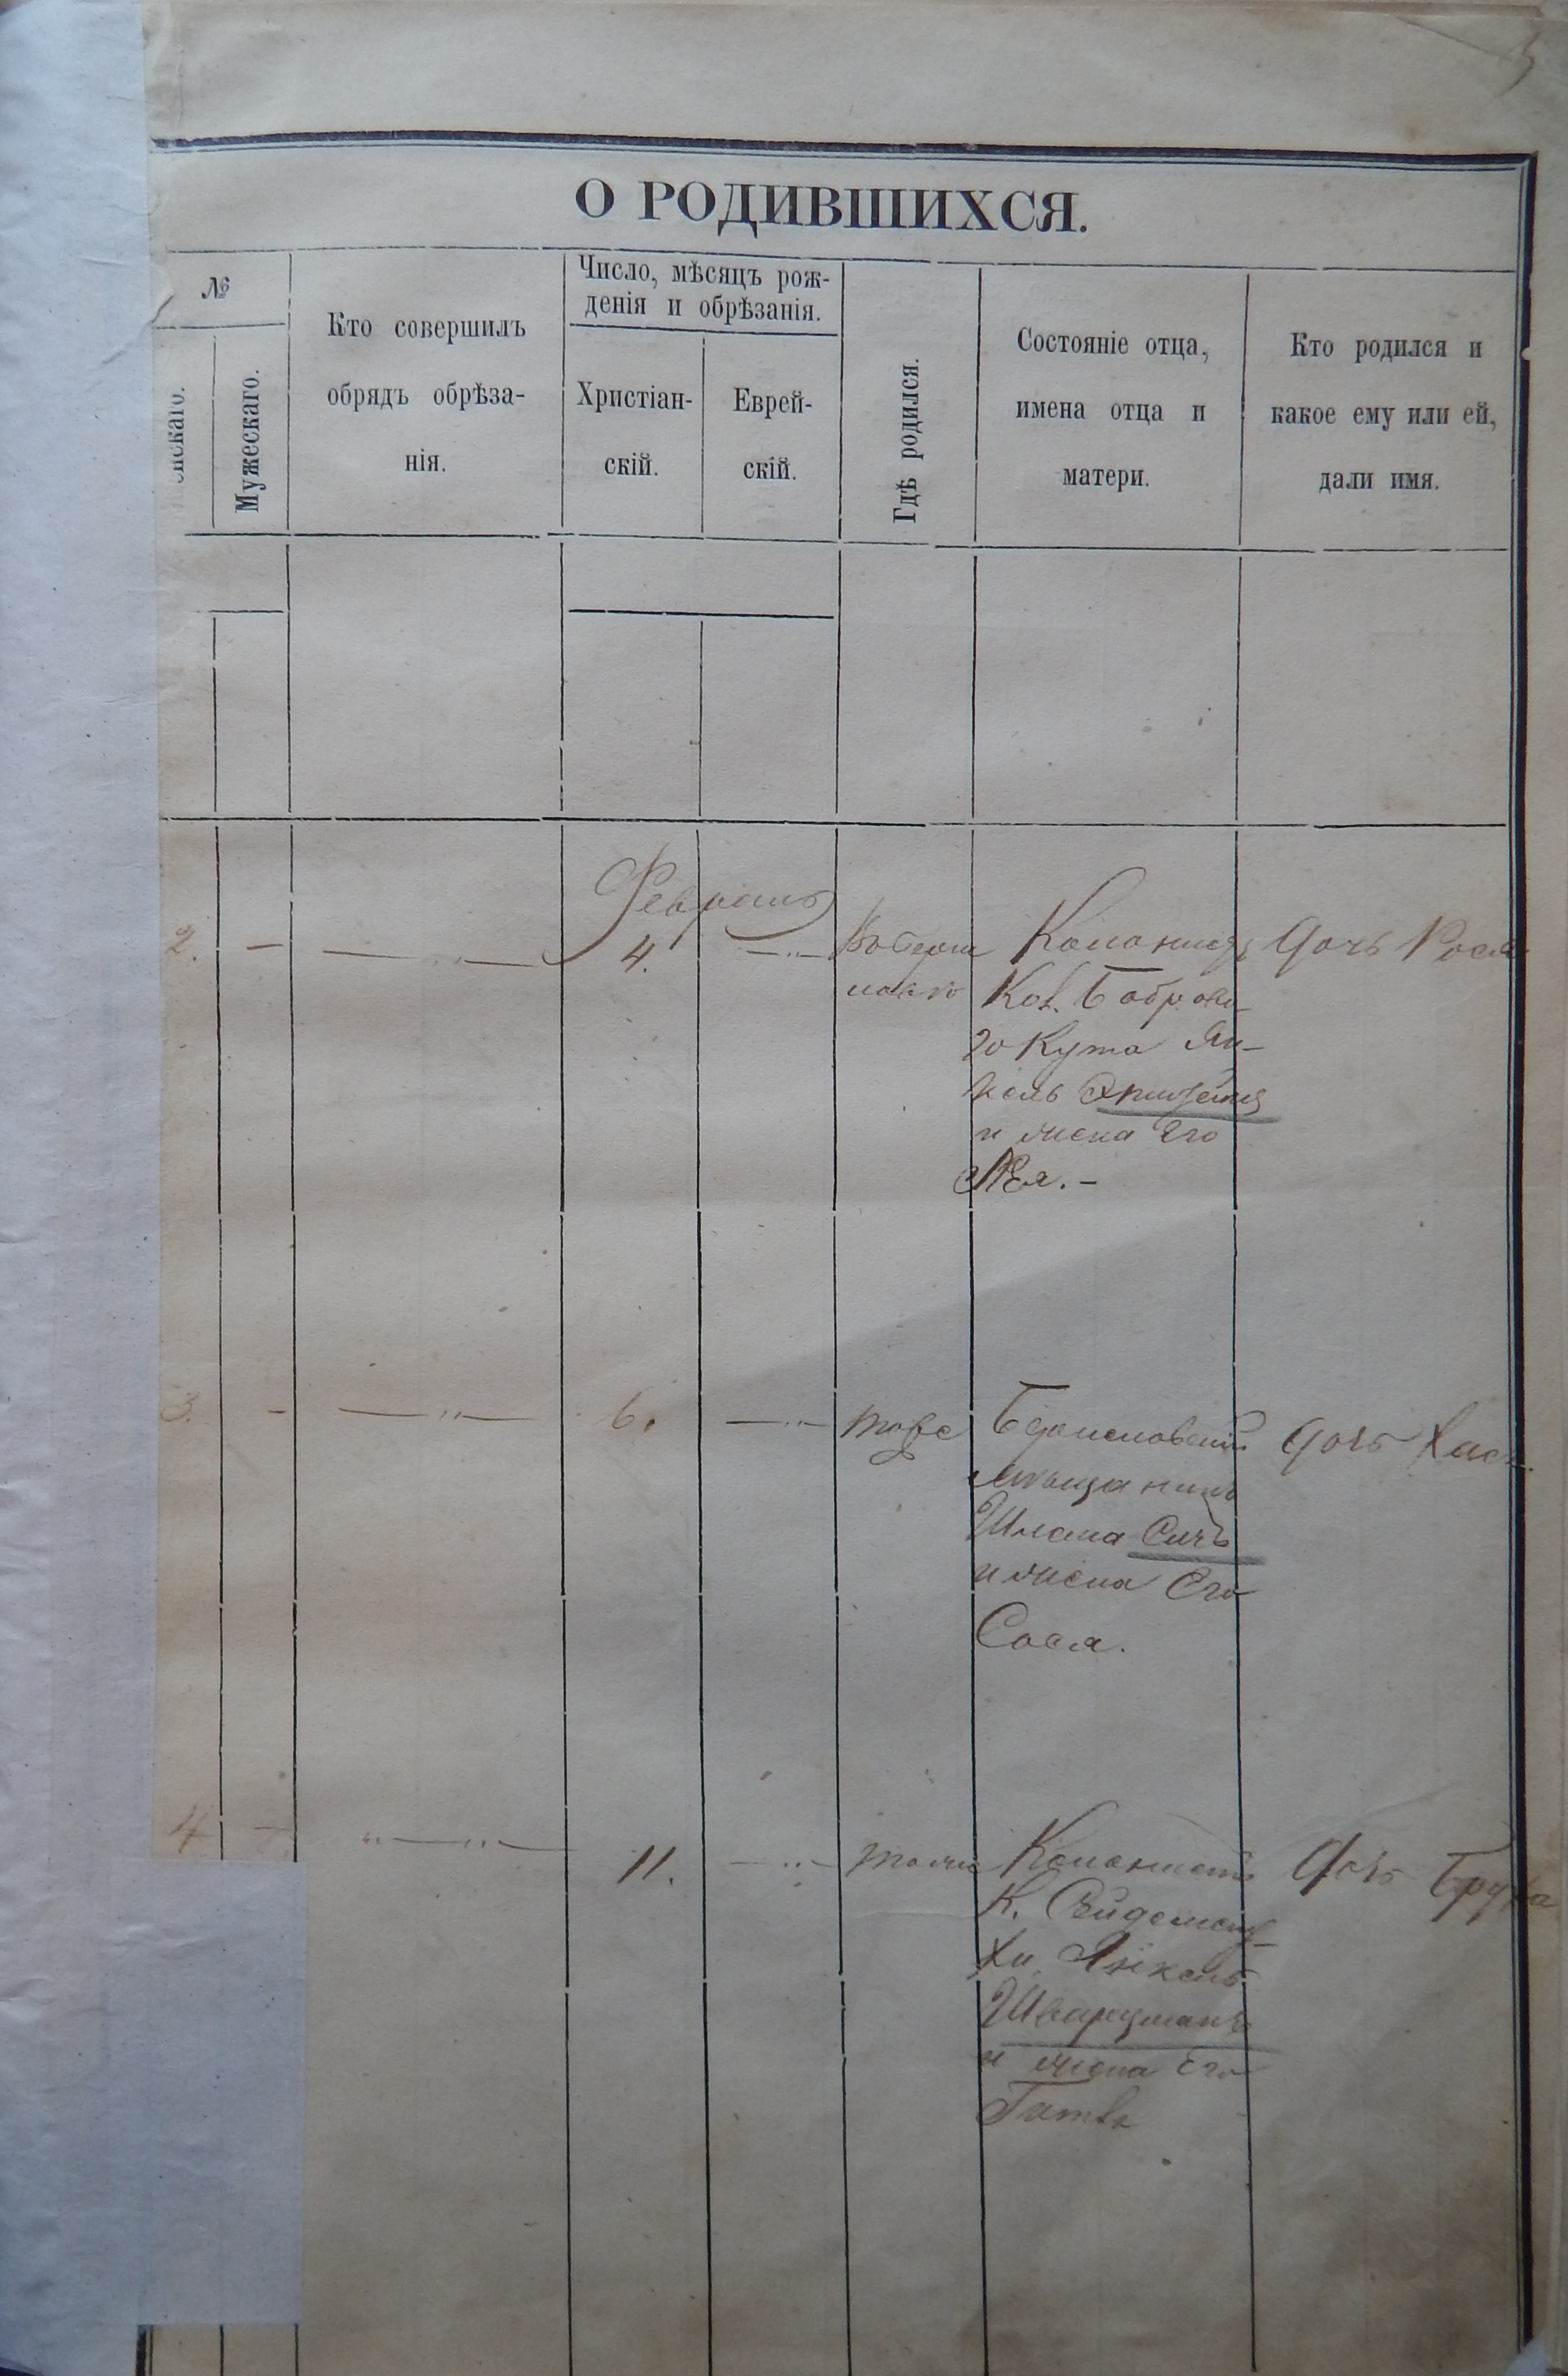 О РОДИВШИХСЯ.
№
Женскаго.
Мужескаго.
Кто совершилъ
обрядъ обрѣза-
нія.
Число, мѣсяцъ рож-
денія и обрѣзанія.
Христіан-
скій.
Еврей-
скій.
Гдѣ родился.
Состояніе отца,
имена отца и
матери.
Кто родился и
какое ему или ей,
дали имя.
Февраль
2. — —„— 4. —„—
Колонистъ
Кол. Боброва-
го Кута Ян-
кель
и жена Его
Лея. —
Дочь Рося
3. — —„— 6. —„— тоже
Бериславскій
мѣщанинъ
Шлема Сичъ
и жена Его
Сося.
Дочь Хася
4 — „—„— 11. —„—
Колонистъ
К. Сейдемену-
хи Янкель
Шварцманъ
и жена Его
Дочь Бруха